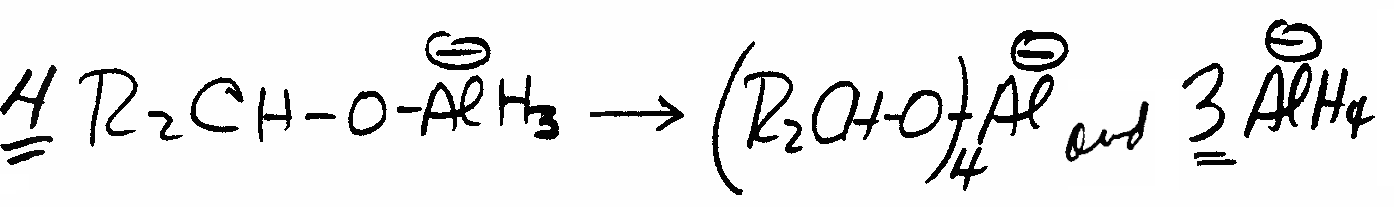 4 R₂CH-O-Al⊖H₃ → (R₂CH-O)₄Al⊖ and 3 Al⊖H₄